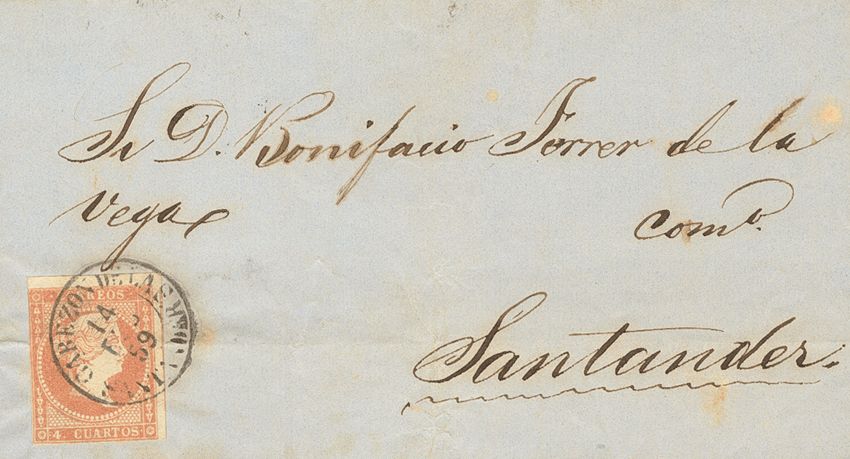 Sr D. Bonifacio Ferrer de la
Vega
comº.
Santander.
CABEZON DE LA SAL
14
E
59
CORREOS
4 CUARTOS